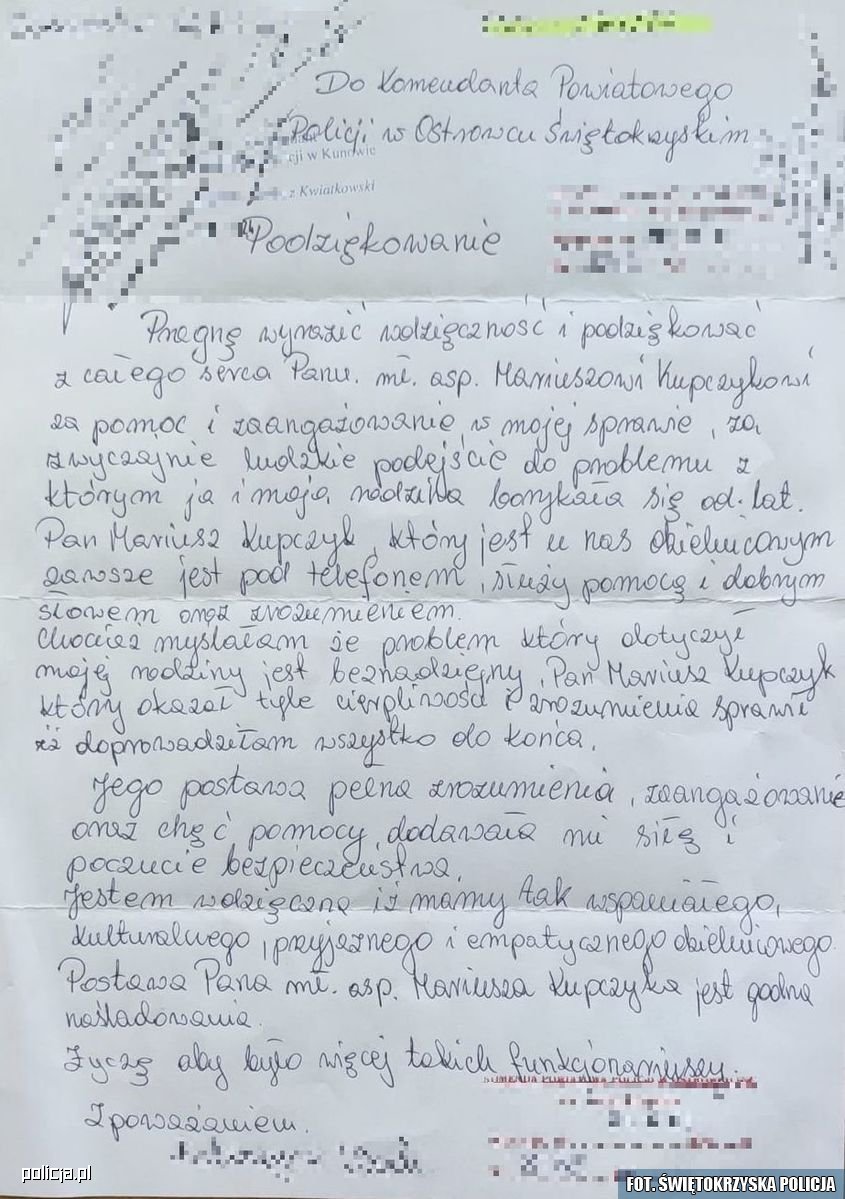 Do Komendanta Powiatowego
Policji w Ostrowcu Świętokrzyskim
cji w Kunowie
z Kwiatkowski
Podziękowanie
Pragnę wyrazić wdzięczność i podziękować
z całego serca Panu. mł. asp. Mariuszowi Kupczykowi
za pomoc i zaangażowanie w mojej sprawie, za
zwyczajnie ludzkie podejście do problemu z
którym ja i moja rodzina borykała się od lat.
Pan Mariusz Kupczyk, który jest u nas dzielnicowym
zawsze jest pod telefonem, służy pomocą i dobrym
słowem oraz zrozumieniem.
Chociaż myślałam że problem który dotyczył
mojej rodziny jest beznadziejny, Pan Mariusz Kupczyk
który okazał tyle cierpliwości i zrozumienia sprawił
iż doprowadziłam wszystko do końca.
Jego postawa pełna zrozumienia, zaangażowanie
oraz chęć pomocy, dodawała mi siłę i
poczucie bezpieczeństwa.
Jestem wdzięczna iż mamy tak wspaniałego,
kulturalnego, przyjaznego i empatycznego dzielnicowego.
Postawa Pana mł. asp. Mariusza Kupczyka jest godna
naśladowania.
Życzę aby było więcej takich funkcjonariuszy.
Z poważaniem.
policja.pl
FOT. ŚWIĘTOKRZYSKA POLICJA